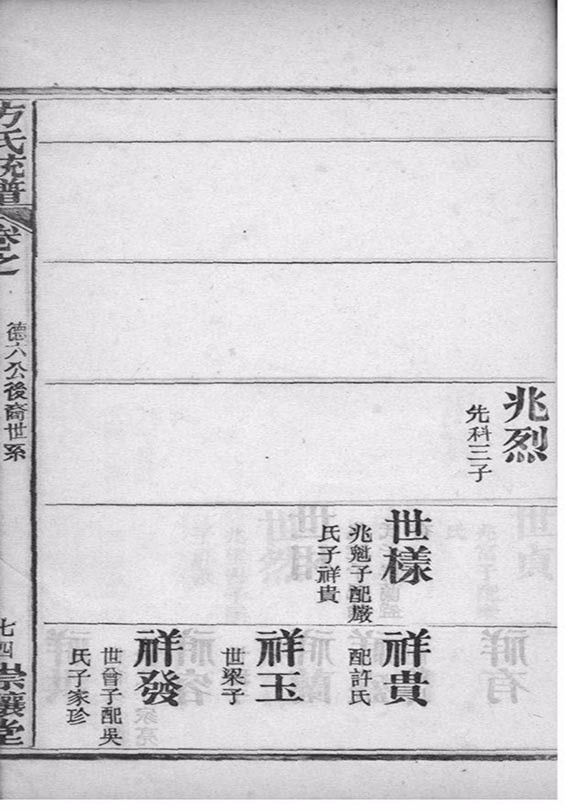 兆烈
先科三子
世樣
兆魁子配嚴
氏子祥貴
祥貴
配許氏
祥玉
世梁子
祥發
世曾子配吳
氏子家珍
方氏統譜
卷之
德六公後裔世系
七四
崇讓堂